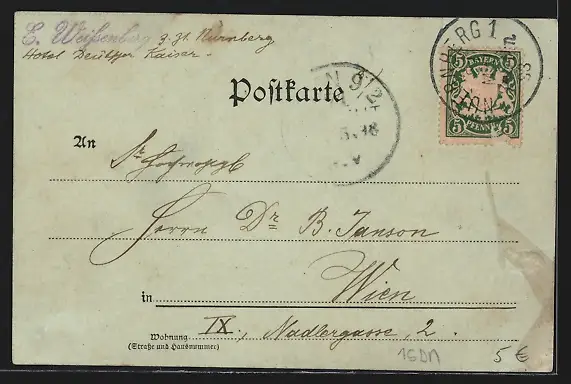 E. Weißenberg z. Zt. Nürnberg
Hotel Deutscher Kaiser -
Postkarte
NÜRNBERG 1
BAYERN
5 5
5 PFENNIG 5
N 9/2
An
Sr. Hochwohlgb
Herrn Dr B. Janson
Wien
in
Wohnung
(Straße und Hausnummer)
IX., Nadlergasse, 2.
16DN
5 €